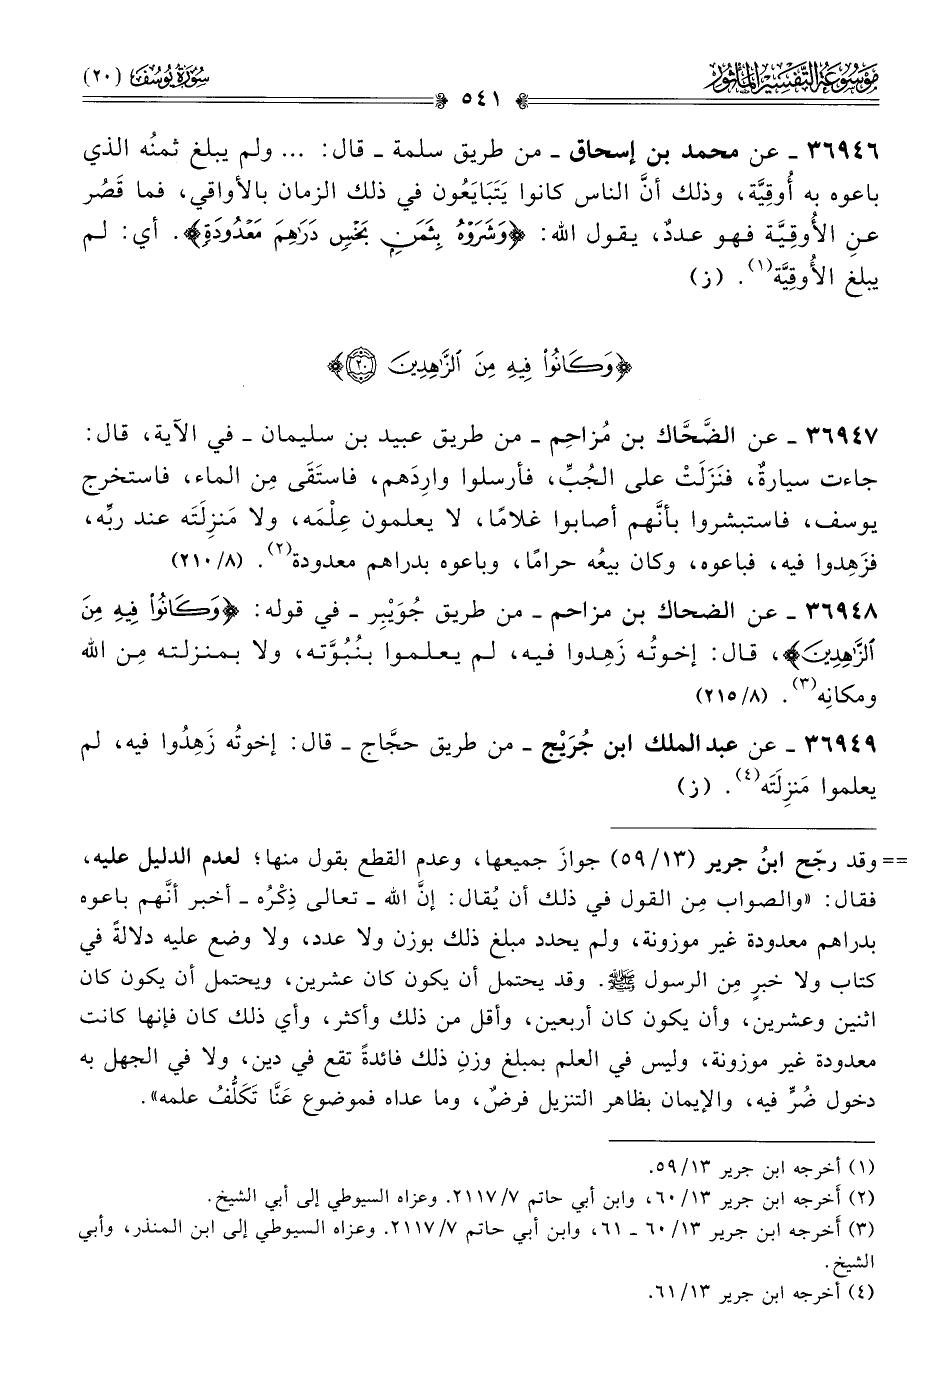 مَوْسُوعَةُ التَّفْسِيرِ المَأْثُورِ
سُورَةُ يُوسُفَ (٢٠)
٥٤١
٣٦٩٤٦ ـ عن محمد بن إسحاق ـ من طريق سلمة ـ قال: ... ولم يبلغ ثمنُه الذي
باعوه به أُوقِيَّة، وذلك أنَّ الناس كانوا يَتَبَايَعُون في ذلك الزمان بالأواقي، فما قَصُر
عنِ الأُوقِيَّة فهو عددٌ، يقول الله: ﴿وَشَرَوْهُ بِثَمَنٍ بَخْسٍ دَرَٰهِمَ مَعْدُودَةٍ﴾. أي: لم
يبلغ الأُوقِيَّة(١). (ز)
﴿وَكَانُواْ فِيهِ مِنَ ٱلزَّٰهِدِينَ ٢٠﴾
٣٦٩٤٧ ـ عن الضَّحَّاك بن مُزاحِم ـ من طريق عبيد بن سليمان ـ في الآية، قال:
جاءت سيارةٌ، فنَزَلَتْ على الجُبِّ، فأرسلوا وارِدَهم، فاستَقَى مِن الماء، فاستخرج
يوسف، فاستبشروا بأنَّهم أصابوا غلامًا، لا يعلمون عِلْمَه، ولا مَنزِلَته عند ربِّه،
فزَهِدوا فيه، فباعوه، وكان بيعُه حرامًا، وباعوه بدراهم معدودة(٢). (٨/ ٢١٠)
٣٦٩٤٨ ـ عن الضحاك بن مزاحم ـ من طريق جُوَيْبِر ـ في قوله: ﴿وَكَانُواْ فِيهِ مِنَ
ٱلزَّٰهِدِينَ﴾، قال: إخوتُه زَهِدوا فيه، لم يعلموا بنُبُوَّته، ولا بمنزلته مِن الله
ومكانِه(٣). (٨/ ٢١٥)
٣٦٩٤٩ ـ عن عبد الملك ابن جُرَيْج ـ من طريق حجَّاج ـ قال: إخوتُه زَهِدُوا فيه، لم
يعلموا مَنزِلَتَه(٤). (ز)
== وقد رجّح ابنُ جرير (١٣/ ٥٩) جوازَ جميعها، وعدم القطع بقول منها؛ لعدم الدليل عليه،
فقال: «والصواب مِن القول في ذلك أن يُقال: إنَّ الله ـ تعالى ذِكْرُه ـ أخبر أنَّهم باعوه
بدراهم معدودة غير موزونة، ولم يحدد مبلغ ذلك بوزن ولا عدد، ولا وضع عليه دلالةً في
كتاب ولا خبرٍ مِن الرسول ﷺ. وقد يحتمل أن يكون كان عشرين، ويحتمل أن يكون كان
اثنين وعشرين، وأن يكون كان أربعين، وأقل من ذلك وأكثر، وأي ذلك كان فإنها كانت
معدودة غير موزونة، وليس في العلم بمبلغ وزنِ ذلك فائدةً تقع في دين، ولا في الجهل به
دخول ضُرٍّ فيه، والإيمان بظاهر التنزيل فرضٌ، وما عداه فموضوع عَنَّا تَكَلُّفُ علمه».
(١) أخرجه ابن جرير ١٣/ ٥٩.
(٢) أخرجه ابن جرير ١٣/ ٦٠، وابن أبي حاتم ٧/ ٢١١٧. وعزاه السيوطي إلى أبي الشيخ.
(٣) أخرجه ابن جرير ١٣/ ٦٠ ـ ٦١، وابن أبي حاتم ٧/ ٢١١٧. وعزاه السيوطي إلى ابن المنذر، وأبي
الشيخ.
(٤) أخرجه ابن جرير ١٣/ ٦١.